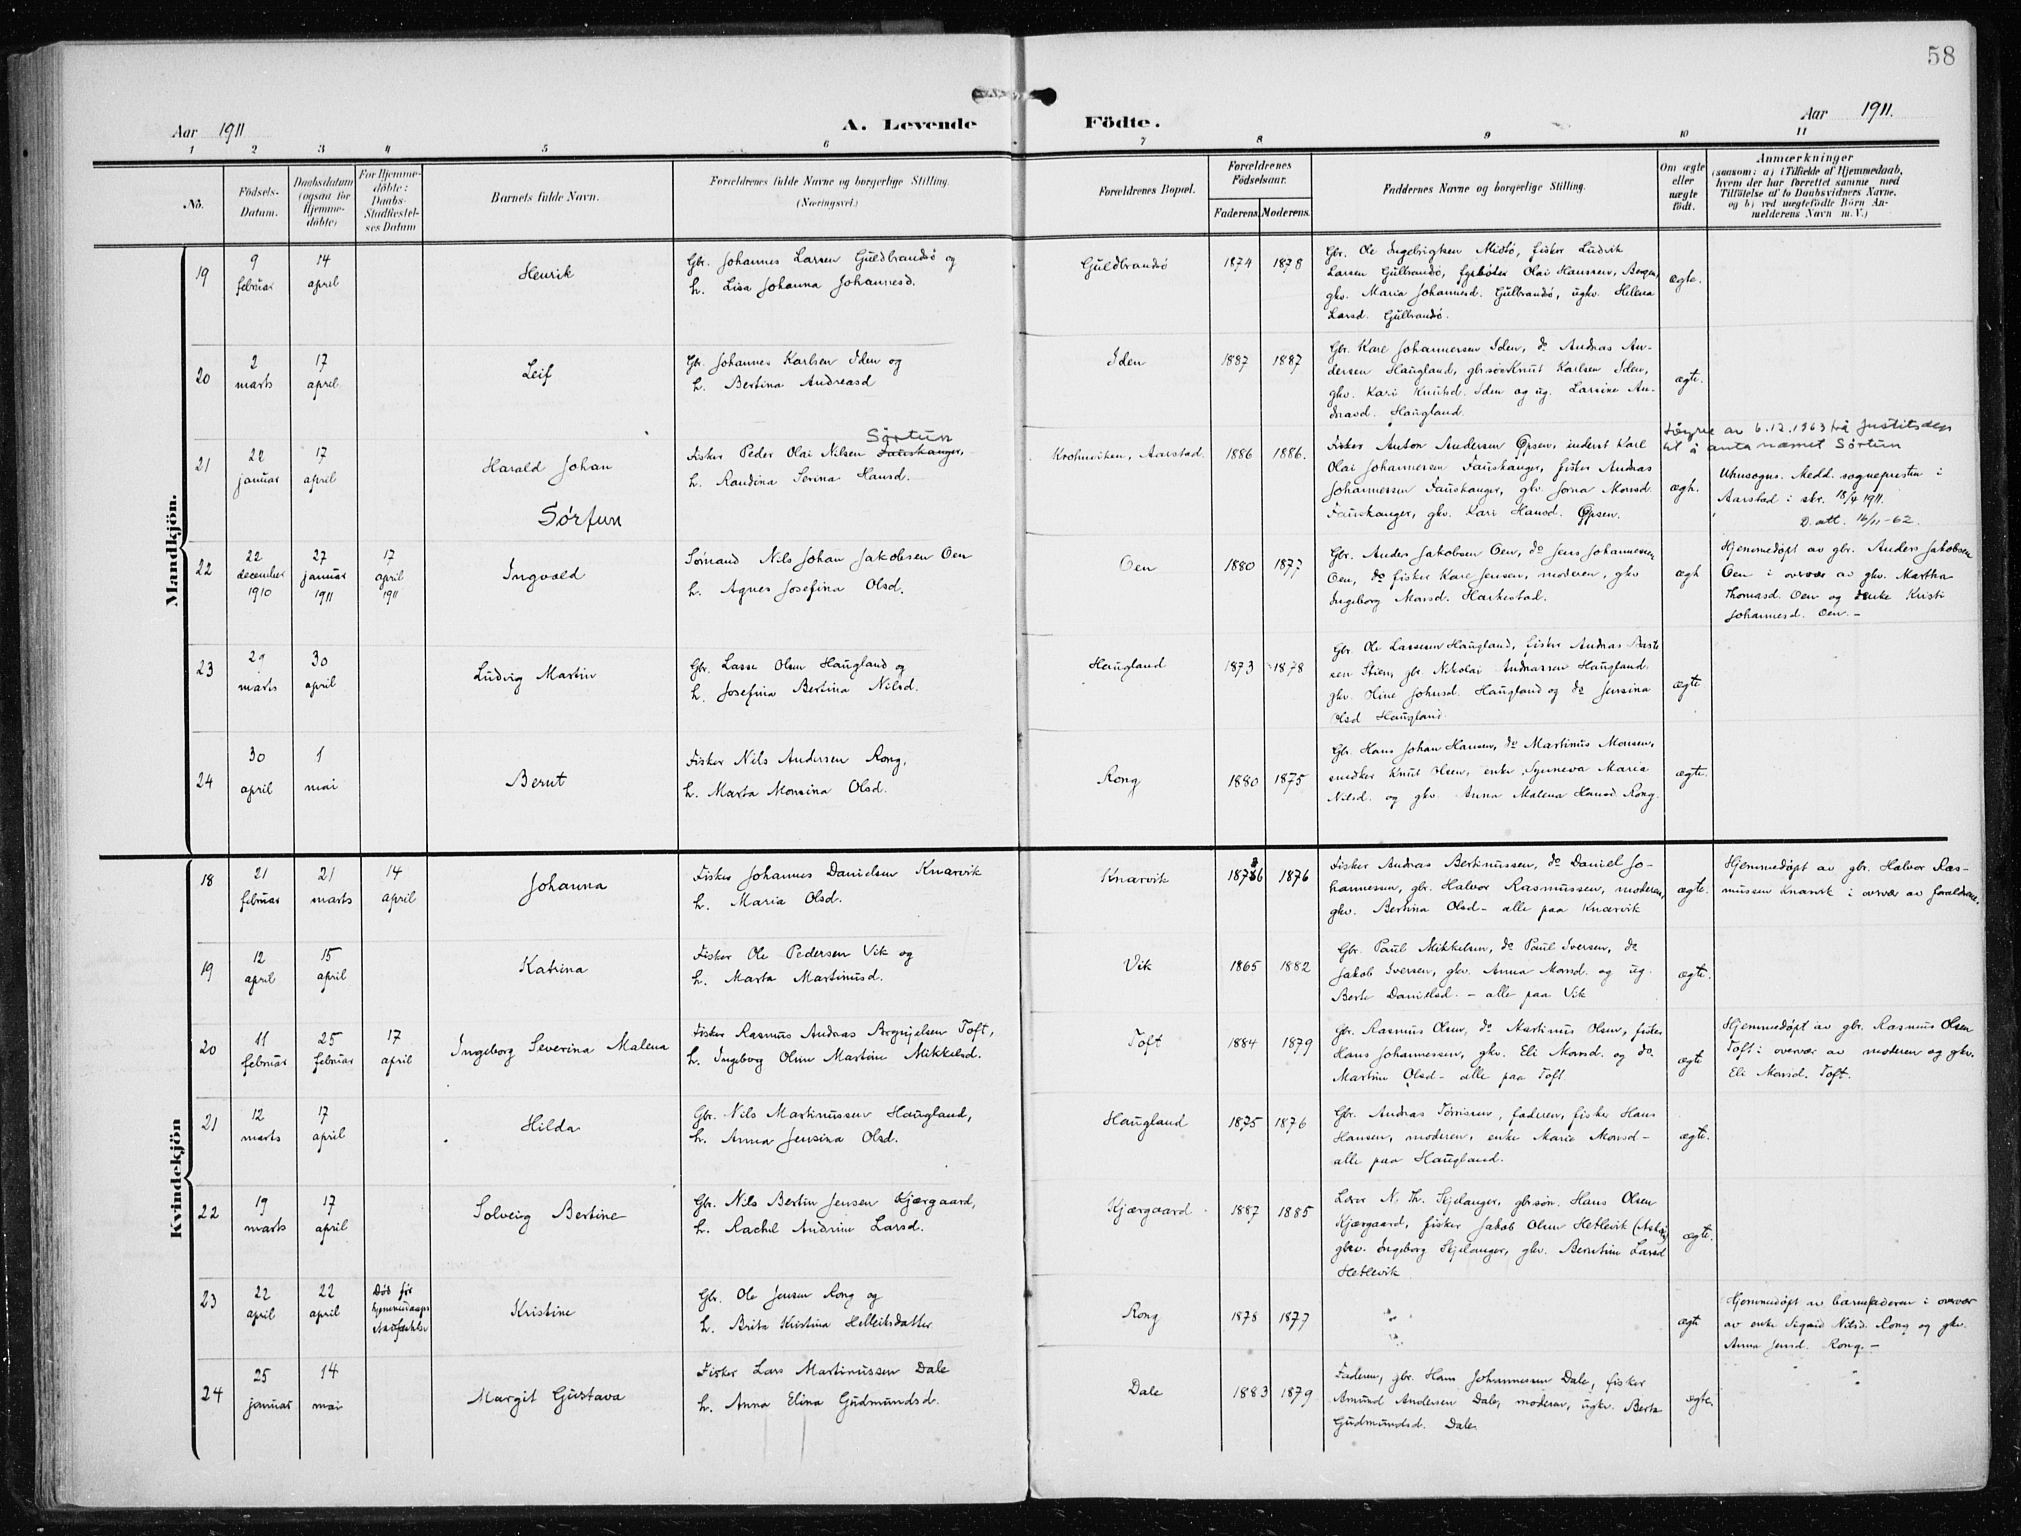 58
Aar 1911
A. Levende Födte.
Aar 1911.
1 2 3 4 5 6 7 8 9 10 11
No.
Födsels-
Datum.
Daabsdatum
(ogsaa for
Hjemme-
döbte)
For Hjemme-
döbte:
Daabs-
Stadfæstel-
ses Datum
Barnets fulde Navn.
Forældrenes fulde Navne og borgerlige Stilling.
(Næringsvei.)
Forældrenes Bopæl.
Forældrenes
Födselsaar.
Faderens. Moderens.
Faddernes Navne og borgerlige Stilling.
Om ægte
eller
uægte
födt.
Anmærkninger
(saasom: a) i Tilfælde af Hjemmedaab,
hvem der har forrettet samme med
Tilföielse af to Daabsvidners Navne.
og b) ved uægtefödte Börn An-
melderens Navn m. V.)
Mandkjön.
19
9
februar
14
april
Henrik
Gbr. Johannes Larsen Guldbrandsö og
h. Lisa Johanna Johannesd.
Guldbrandsö
1874 1878
Gbr. Ole Ingebrigtsen Midtö, fisker Ludvik
Larsen Gulbrandsö, fyrböter Olai Hanssen, Bergen,
gkv. Maria Johannesd. Gulbrandsö, ugkv. Helena
Larsd. Gulbrandsö.
ægte.
20
2
marts
17
april
Leif
Gbr. Johannes Karlsen Iden og
h. Bertina Andreasd
Iden
1887 1887
Gbr. Karl Johannersen Iden, do Andras An-
dersen Haugland, gbrsøn Knut Karlsen Iden,
gkv. Kari Knutsd. Iden og ug. Larsine An-
drasd. Haugland.
ægte.
21
22
januar
17
april
Harald Johan
Sørtun
Sørtun
Fisker Peder Olai Nilsen Fauskanger,
h. Randina Serina Hansd.
Krohnviken, Aarstad.
1886 1886.
Fisker Anton Andersen Øpsen, inderst Karl
Olai Johannersen Fauskanger, fisker Andras
Johannessen Fauskanger, gkv. Jorna Monsd.
Fauskanger, gkv. Kari Hansd. Øpsen.
ægt.
av 6.12.1963 frå Justitsdep
til å anta namnet Sørtun
Utensogns. Medd. sognepresten i
Aarstad i skr. 18/4 1911.
D. att. 16/11-62.
22
22
december
1910
27
januar
1911
17
april
1911
Ingvald
Sømand Nils Johan Jakobsen Oen
h. Agnes Josefina Olsd.
Oen
1880 1877
Gbr. Anders Jakobsen Oen, do Jens Johannessen
Oen, do fisker Karl Jensen, moderen, gkv
Ingeborg Monsd. Harkestad.
ægt
Hjemmedøpt av gbr. Anders Jakobsen
Oen i overvær av gkv. Martha
Thomasd. Oen og enke Kristi
Johannesd. Oen.-
23
29
marts
30
april
Ludvig Martin
Gbr. Lasse Olsen Haugland og
h. Josefina Bertina Nilsd.
Haugland
1873 1878
Gbr. Ole Lassesen Haugland, fisker Andras Baste
sen Stien, gbr. Nikolai Andrassen Haugland
gkv. Oline Johnsd. Haugland og do Jensina
Olsd Haugland
ægte
24
30
april
1
mai
Bernt
Fisker Nils Andersen Rong,
h. Marta Monsina Olsd.
Rong
1880 1875
Gbr. Hans Johan Hansen, do Martinus Monsen,
snedker Knut Olsen, enke Synneva Maria
Nilsd. og gkv. Anna Malena Hansd. Rong.
ægte.
Kvindekjön
18
21
februar
21
marts
14
april
Johanna
Fisker Johannes Danielsen Knarvik
h. Maria Olsd.
Knarvik
1876 1876
Fisker Andras Bertinussen, do Daniel Jo-
hannessen, gbr. Halvor Rasmussen, moderen,
gkv. Bertina Olsd - alle paa Knarvik
ægte.
Hjemmedøpt av gbr. Halvor Ras-
mussen Knarvik i overvær av forældrene.
19
12
april
15
april
Katrina
Fisker Ole Pedersen Vik og
h. Marta Martinusd.
Vik
1865 1882
Gbr. Paul Mikkelsen, do Paul Iversen, do
Jakob Iversen, gkv. Anna Monsd. og ug.
Berte Danielsd. - alle paa Vik
ægte.
20
11
februar
25
februar
17
april
Ingeborg Severina Malena
Fisker Rasmus Andras Brynjelsen Toft,
h. Ingeborg Oline Martine Mikkelsd.
Toft
1884 1879
Gbr. Rasmus Olsen, do Martinus Olsen, fisker
Hans Johannessen, gkv. Eli Monsd. og do.
Martine Olsd - alle paa Toft
ægte
Hjemmedøpt av gbr. Rasmus Olsen
Toft i overvær av moderen og gkv.
Eli Monsd. Toft.
21
12
marts
17
april
Hilda
Gbr. Nils Martinussen Haugland,
h. Anna Jensina Olsd.
Haugland
1875 1876
Gbr. Andras Tørrissen, faderen, fisker Hans
Hansen, moderen, enke Marie Monsd -
alle paa Haugland.
ægte.
22
19
marts
17
april
Solveig Bertine
Gbr. Nils Bertin Jensen Kjærgaard,
h. Rachel Andrine Larsd.
Kjærgaard
1887 1885
Lærer N. Th. Sejelanger, gbrsøn. Hans Olsen
Kjærgaard, fisker Jakob Olsen Hetlevik (Askøy)
gkv. Ingeborg Sejelanger, gkv. Berntine Larsd
Hetlevik
ægte.
23
22
april
22
april
Død før
hjemmedaaps
stadfæstelse
Kristine
Gbr. Ole Jensen Rong og
h. Brita Kristina Helleitsdatter
Rong
1878 1877
ægt
Hjemmedøpt av barnefaderen i overvær
av enke Sigrid Nilsd. Rong og gkv.
Anna Jensd. Rong.-
24
25
januar
14
mai
Margit Gustava
Fisker Lars Martinussen Dale
h. Anna Elina Gudmundsd.
Dale
1883 1879
Faderen, gbr. Hans Johannessen Dale, fisker
Amund Andersen Dale, moderen, ugkv. Berta
Gudmundsd. Dale
ægte.